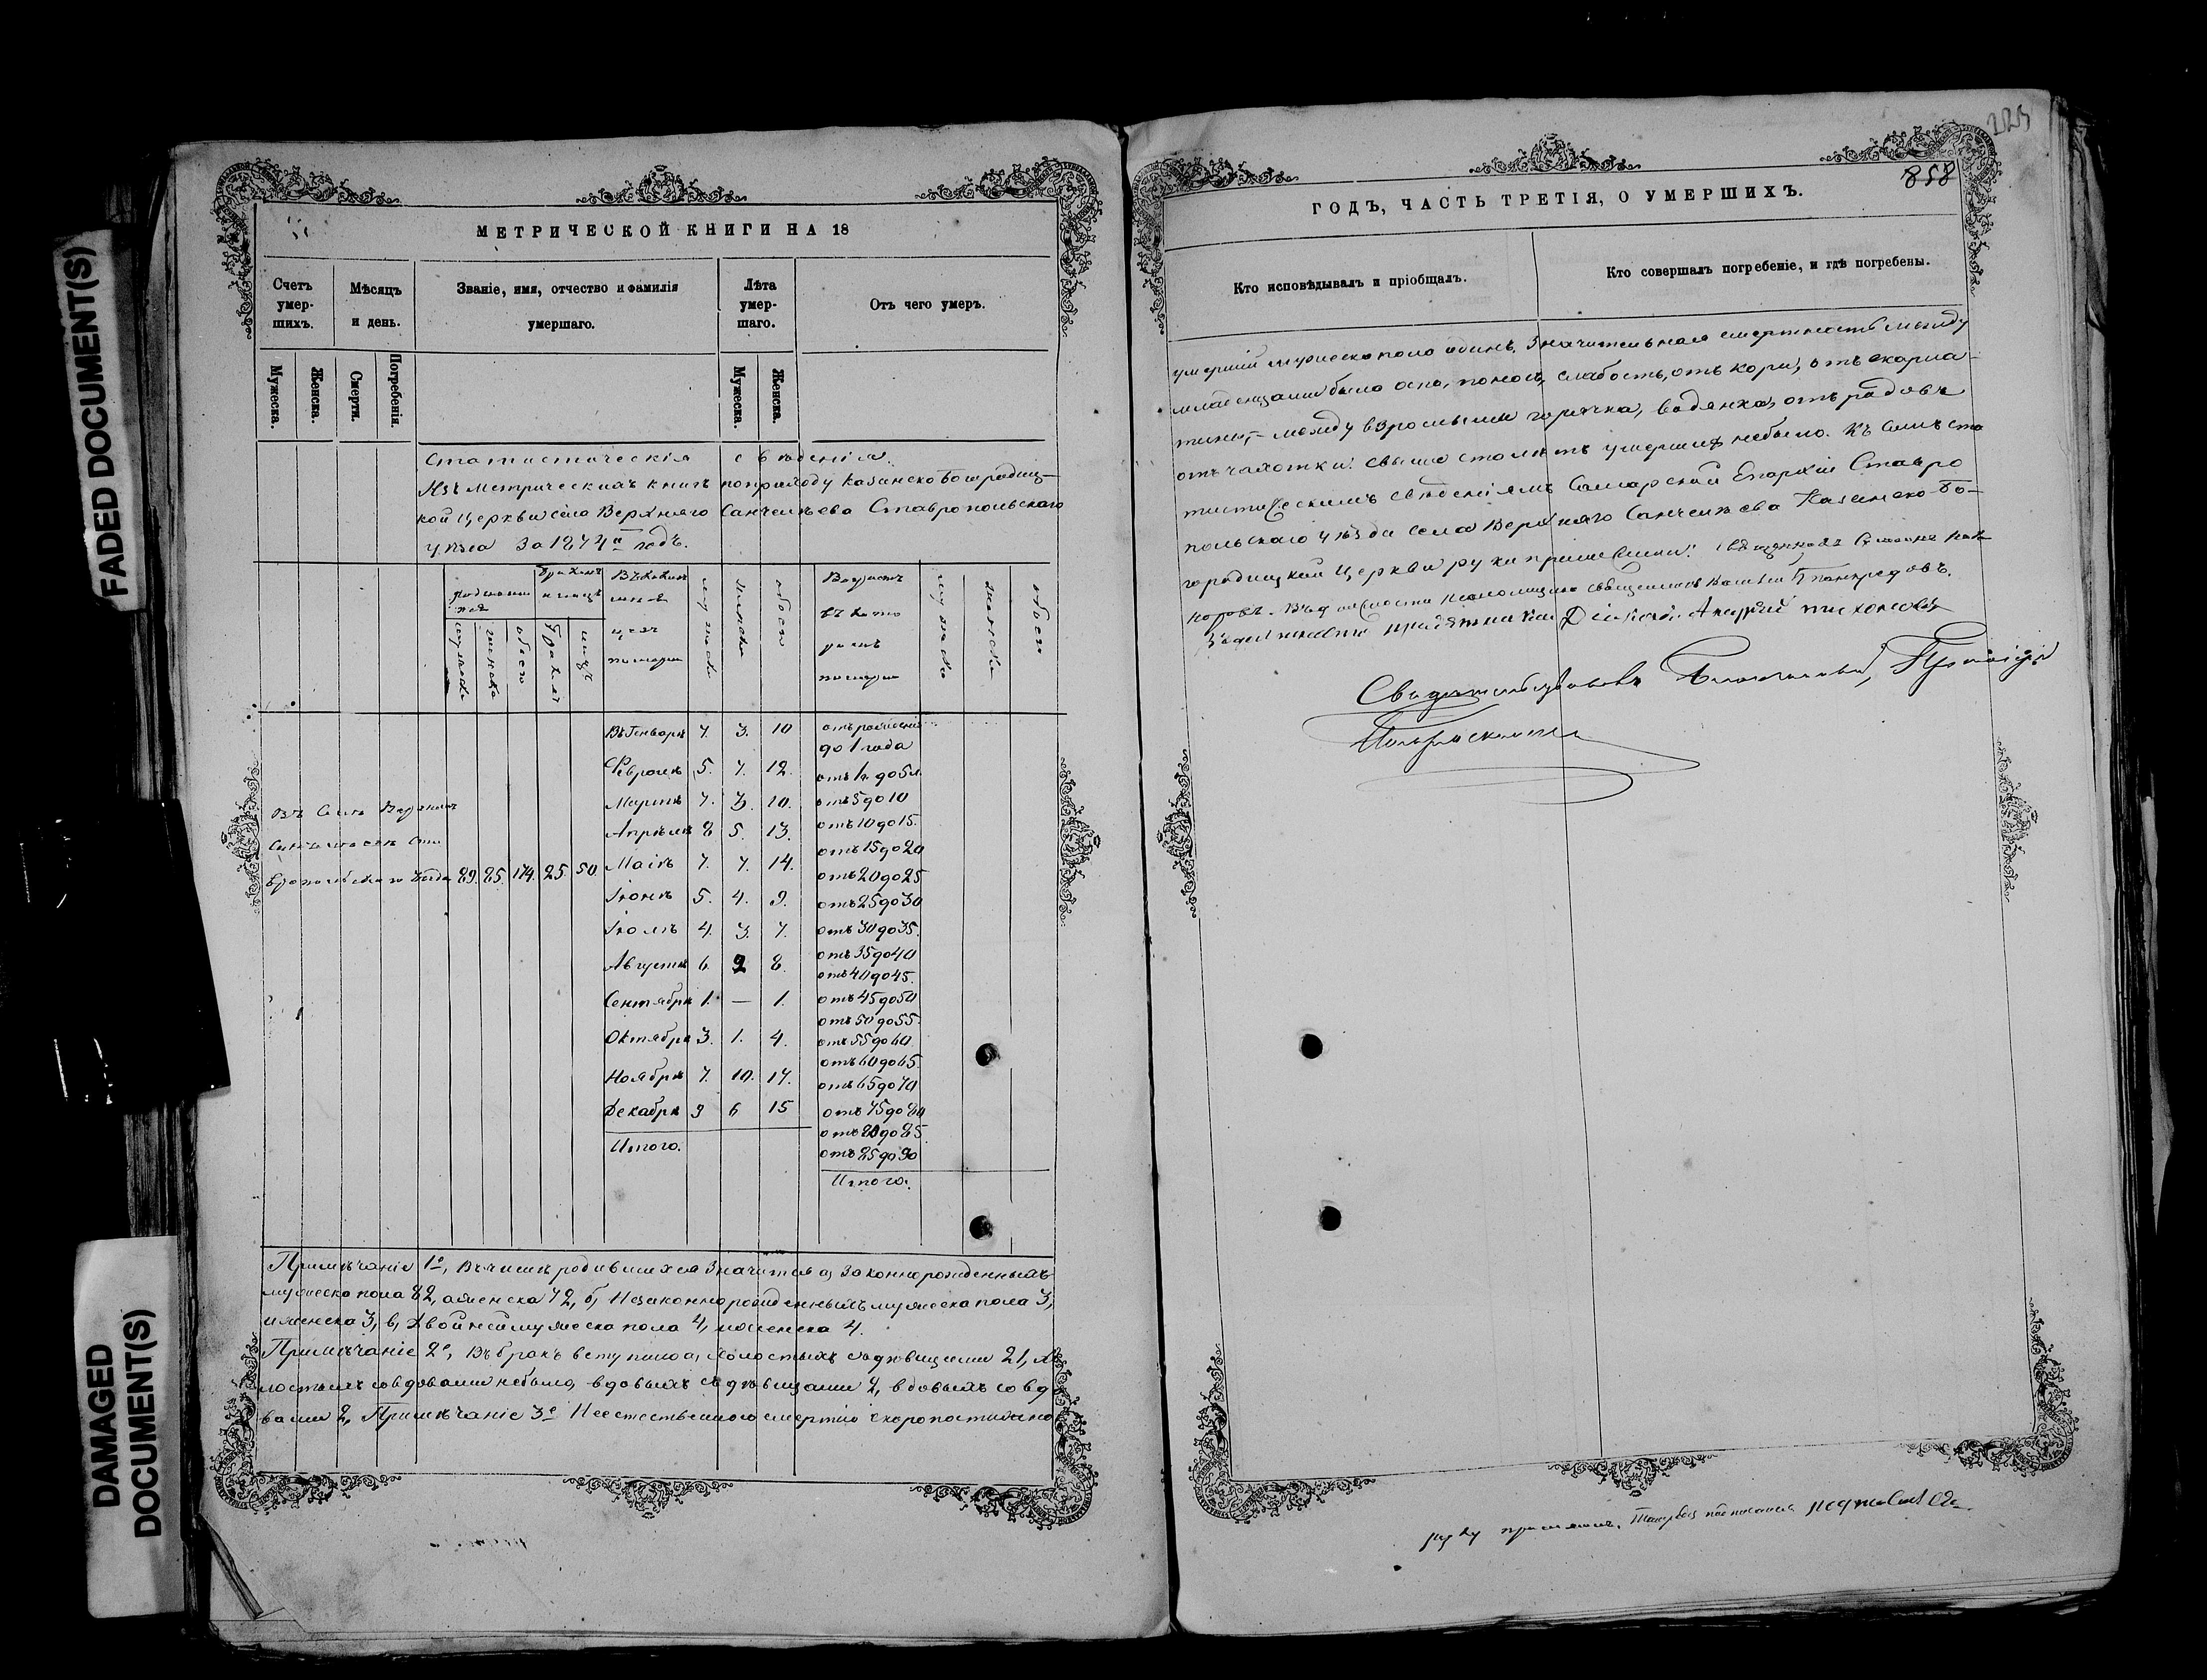 FADED DOCUMENT(S)
DAMAGED
DOCUMENT(S)
МЕТРИЧЕСКОЙ КНИГИ НА 18
Счетъ умер-шихъ.
Мѣсяцъ и день.
Званіе, имя, отчество и фамилія умершаго.
Лѣта умер-шаго.
Отъ чего умеръ.
Мужеска.
Женска.
Смерти.
Погребенія.
Мужеска.
Женска.
Статистическія свѣденія
Изъ метрическихъ книгъ по приходу Казанско Богородиц-
кой церкви села Верхняго Санчелѣева Ставропольскаго
уѣзда за 1874й годъ.
мужска женска обоего
мужска женска обоего
Въ Селѣ Верхнемъ
Санчелѣевѣ Ста
вропольскаго уѣзда 89. 85. 174. 25. 50
Въ Генварѣ 7. 3. 10
Февралѣ 5. 7. 12.
Мартѣ 7. 3. 10.
Апрѣлѣ 8 5. 13.
Маіѣ 7. 7. 14.
Іюнѣ 5. 4. 9.
Іюлѣ 4. 3. 7.
Августѣ 6. 2 8.
Сентябрѣ 1. — 1.
Октябрѣ 3. 1. 4.
Ноябрѣ 7. 10. 17.
Декабрѣ 9 6 15
Итого.
отъ рожденія
до 1 года
отъ 1г до 5л.
отъ 5 до 10
отъ 10 до 15.
отъ 15 до 20
отъ 20 до 25
отъ 25 до 30
отъ 30 до 35.
отъ 35 до 40
отъ 40 до 45.
отъ 45 до 50
отъ 50 до 55.
отъ 55 до 60.
отъ 60 до 65.
отъ 65 до 70
отъ 75 до 80
отъ 80 до 85.
отъ 85 до 90
Итого.
Примѣчаніе 1е, Въ числѣ родившихся значится а, законнорожденныхъ
мужеска пола 82, а женска 72, б, Незаконнорожденныхъ мужеска пола 3,
и женска 3, в, Двойней мужеска пола 4, и женска 4.
Примѣчаніе 2е, Въ бракъ вступило а, холостыхъ съ дѣвицами 21, хо
лостыхъ со вдовами небыло, вдовыхъ съ дѣвицами 2, вдовыхъ со вдо
вами 2, Примѣчаніе 3е Неестественною смертію скоропостижно
225
858
ГОДЪ, ЧАСТЬ ТРЕТІЯ, О УМЕРШИХЪ.
Кто исповѣдывалъ и пріобщалъ.
Кто совершалъ погребеніе, и гдѣ погребены.
умершій мужеска пола одинъ. Значительная смертность между
младенцами была оспа, поносъ, слабость, отъ кори, отъ скарла-
тины, – между взрослыми горячка, водянка, отъ родовъ
отъ чахотки. свыше ста лѣтъ умершихъ небыло. Къ симъ ста
тистическимъ свѣденіямъ Самарской Епархіи Ставро
польскаго уѣзда села Верхняго Санчелѣева Казанско-Бо-
городицкой церкви руки приложили: священникъ
священникъ Василій
Діаконъ Андрей Тихоновъ
Свидѣтельствовалъ Благочинный,